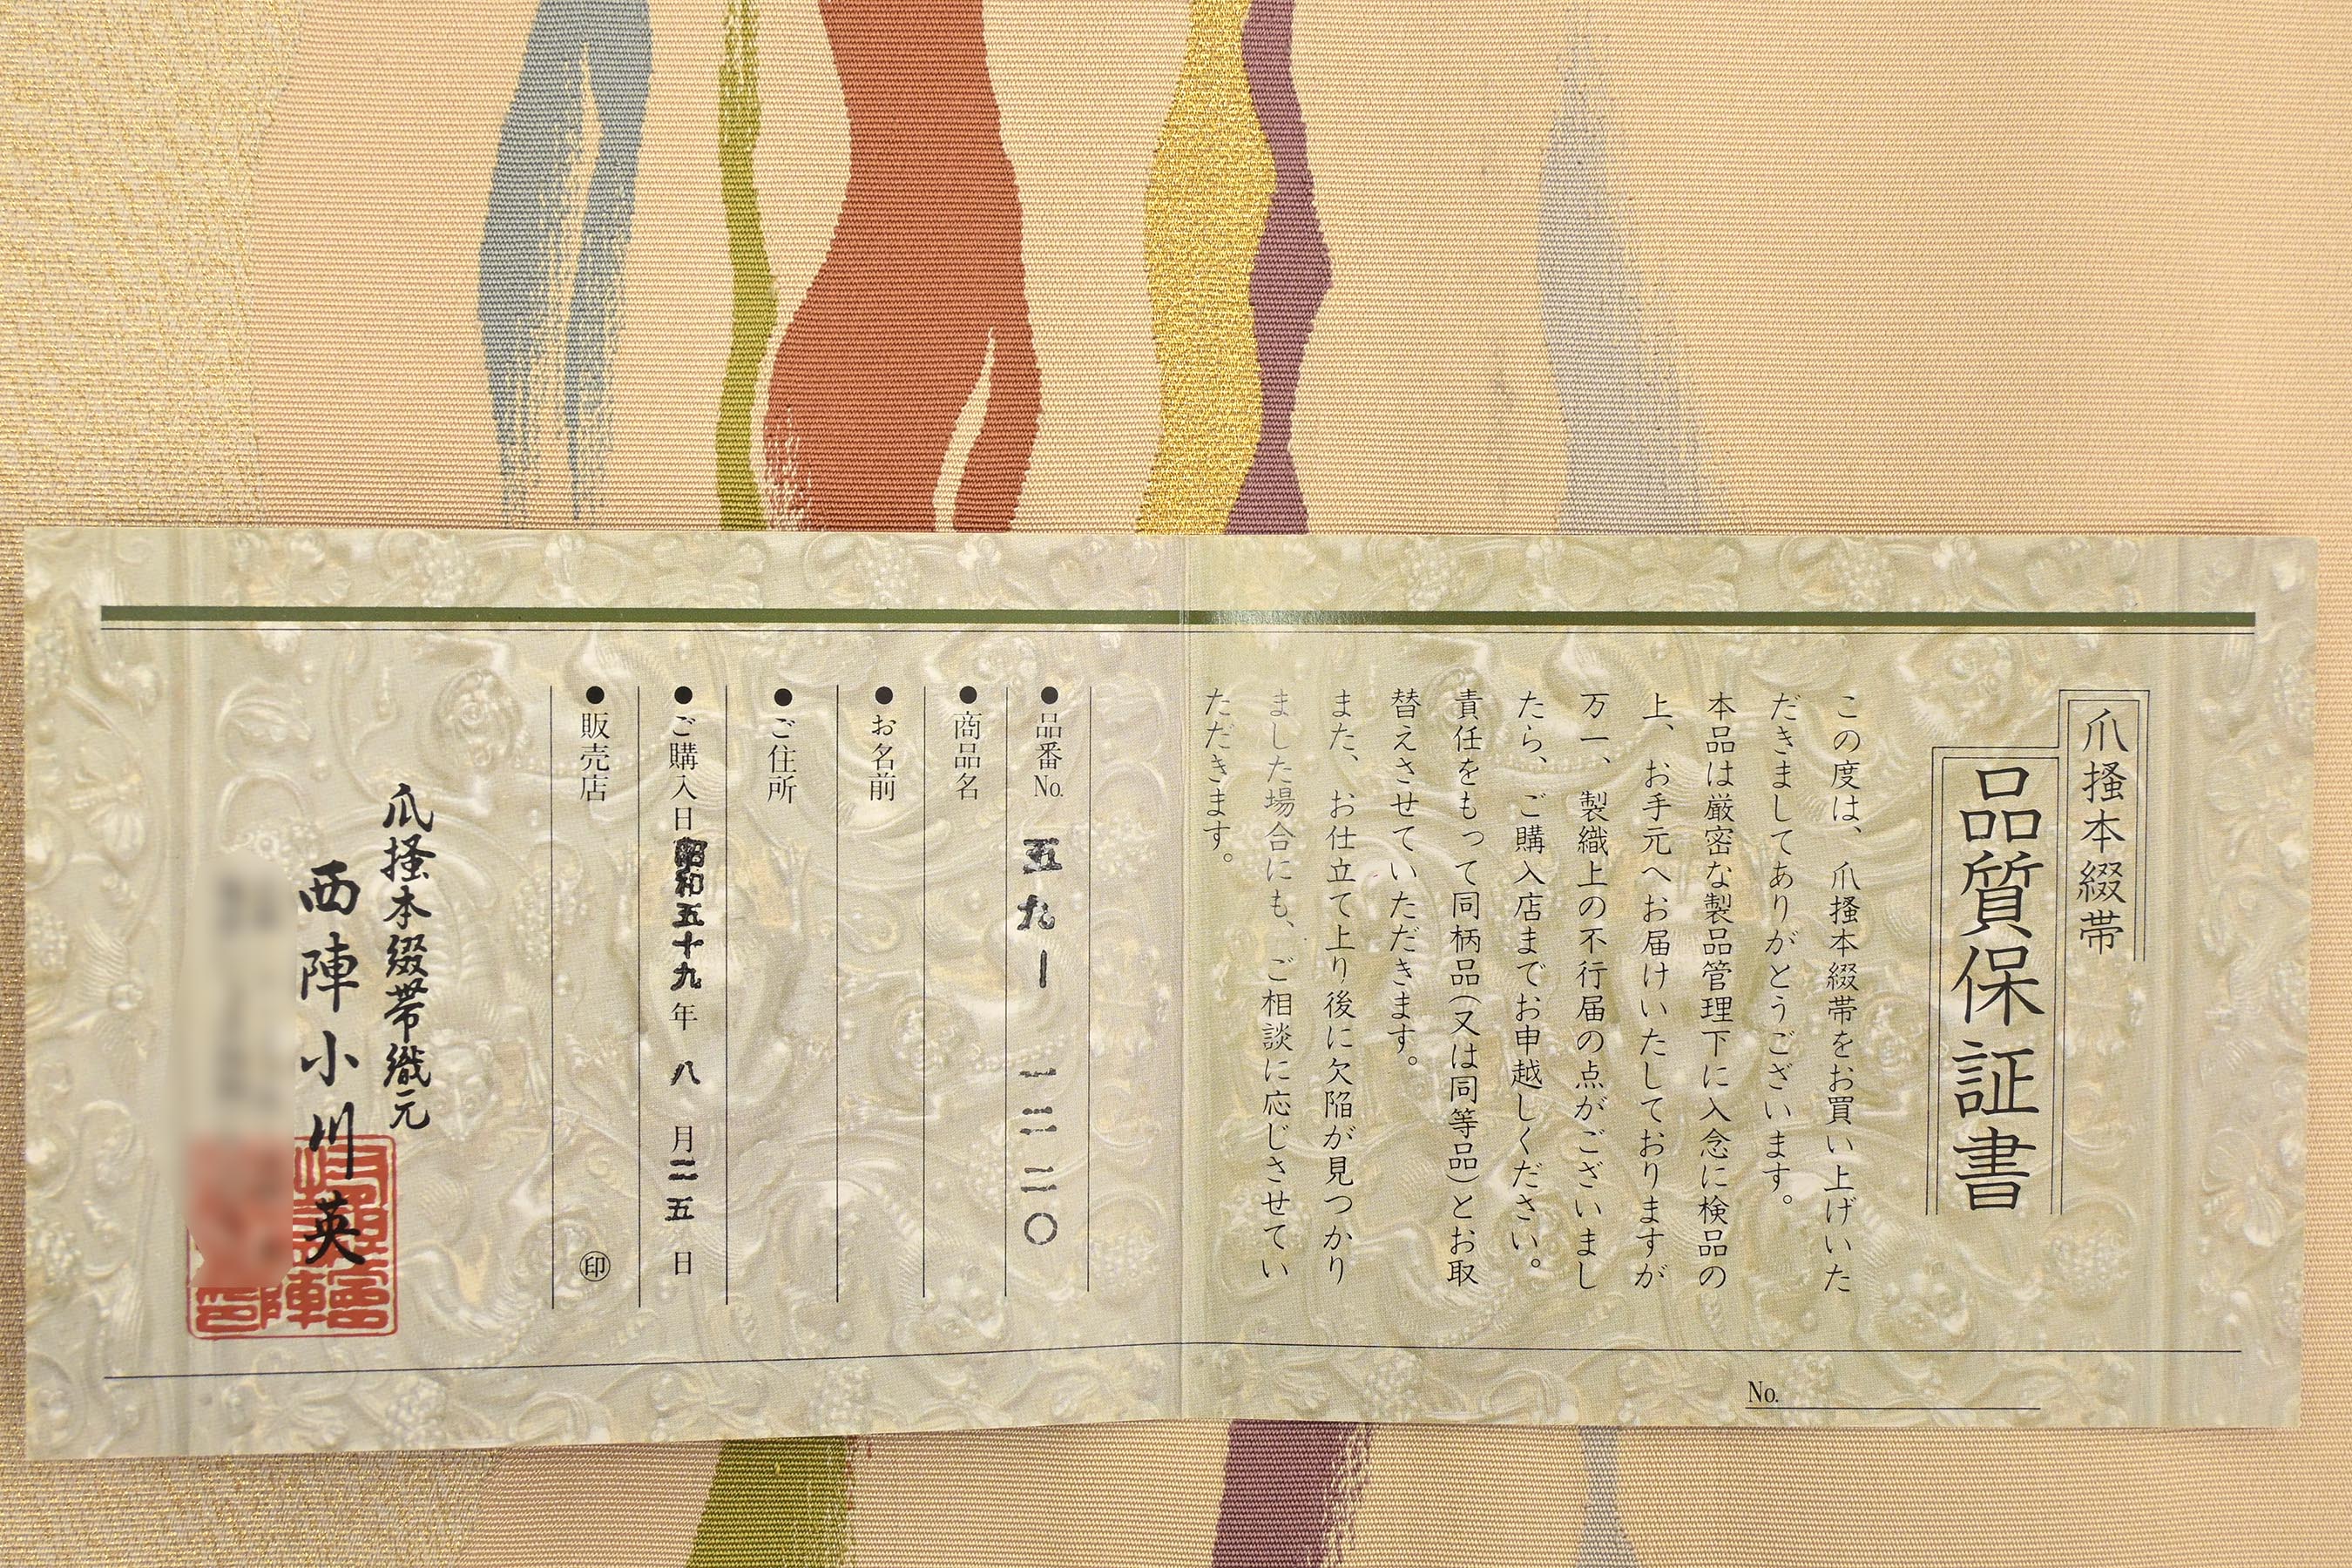 爪掻本綴帯
品質保証書
この度は、爪掻本綴帯をお買い上げいた
だきましてありがとうございます。
本品は厳密な製品管理下に入念に検品の
上、お手元へお届けいたしておりますが
万一、製織上の不行届の点がございまし
たら、ご購入店までお申越しください。
責任をもって同柄品(又は同等品)とお取
替えさせていただきます。
また、お仕立て上り後に欠陥が見つかり
ました場合にも、ご相談に応じさせてい
ただきます。
No.
●品番No. 五九ー一二二〇
●商品名
●お名前
●ご住所
●ご購入日 昭和五十九年八月二五日
●販売店 ㊞
爪掻本綴帯織元
西陣小川英